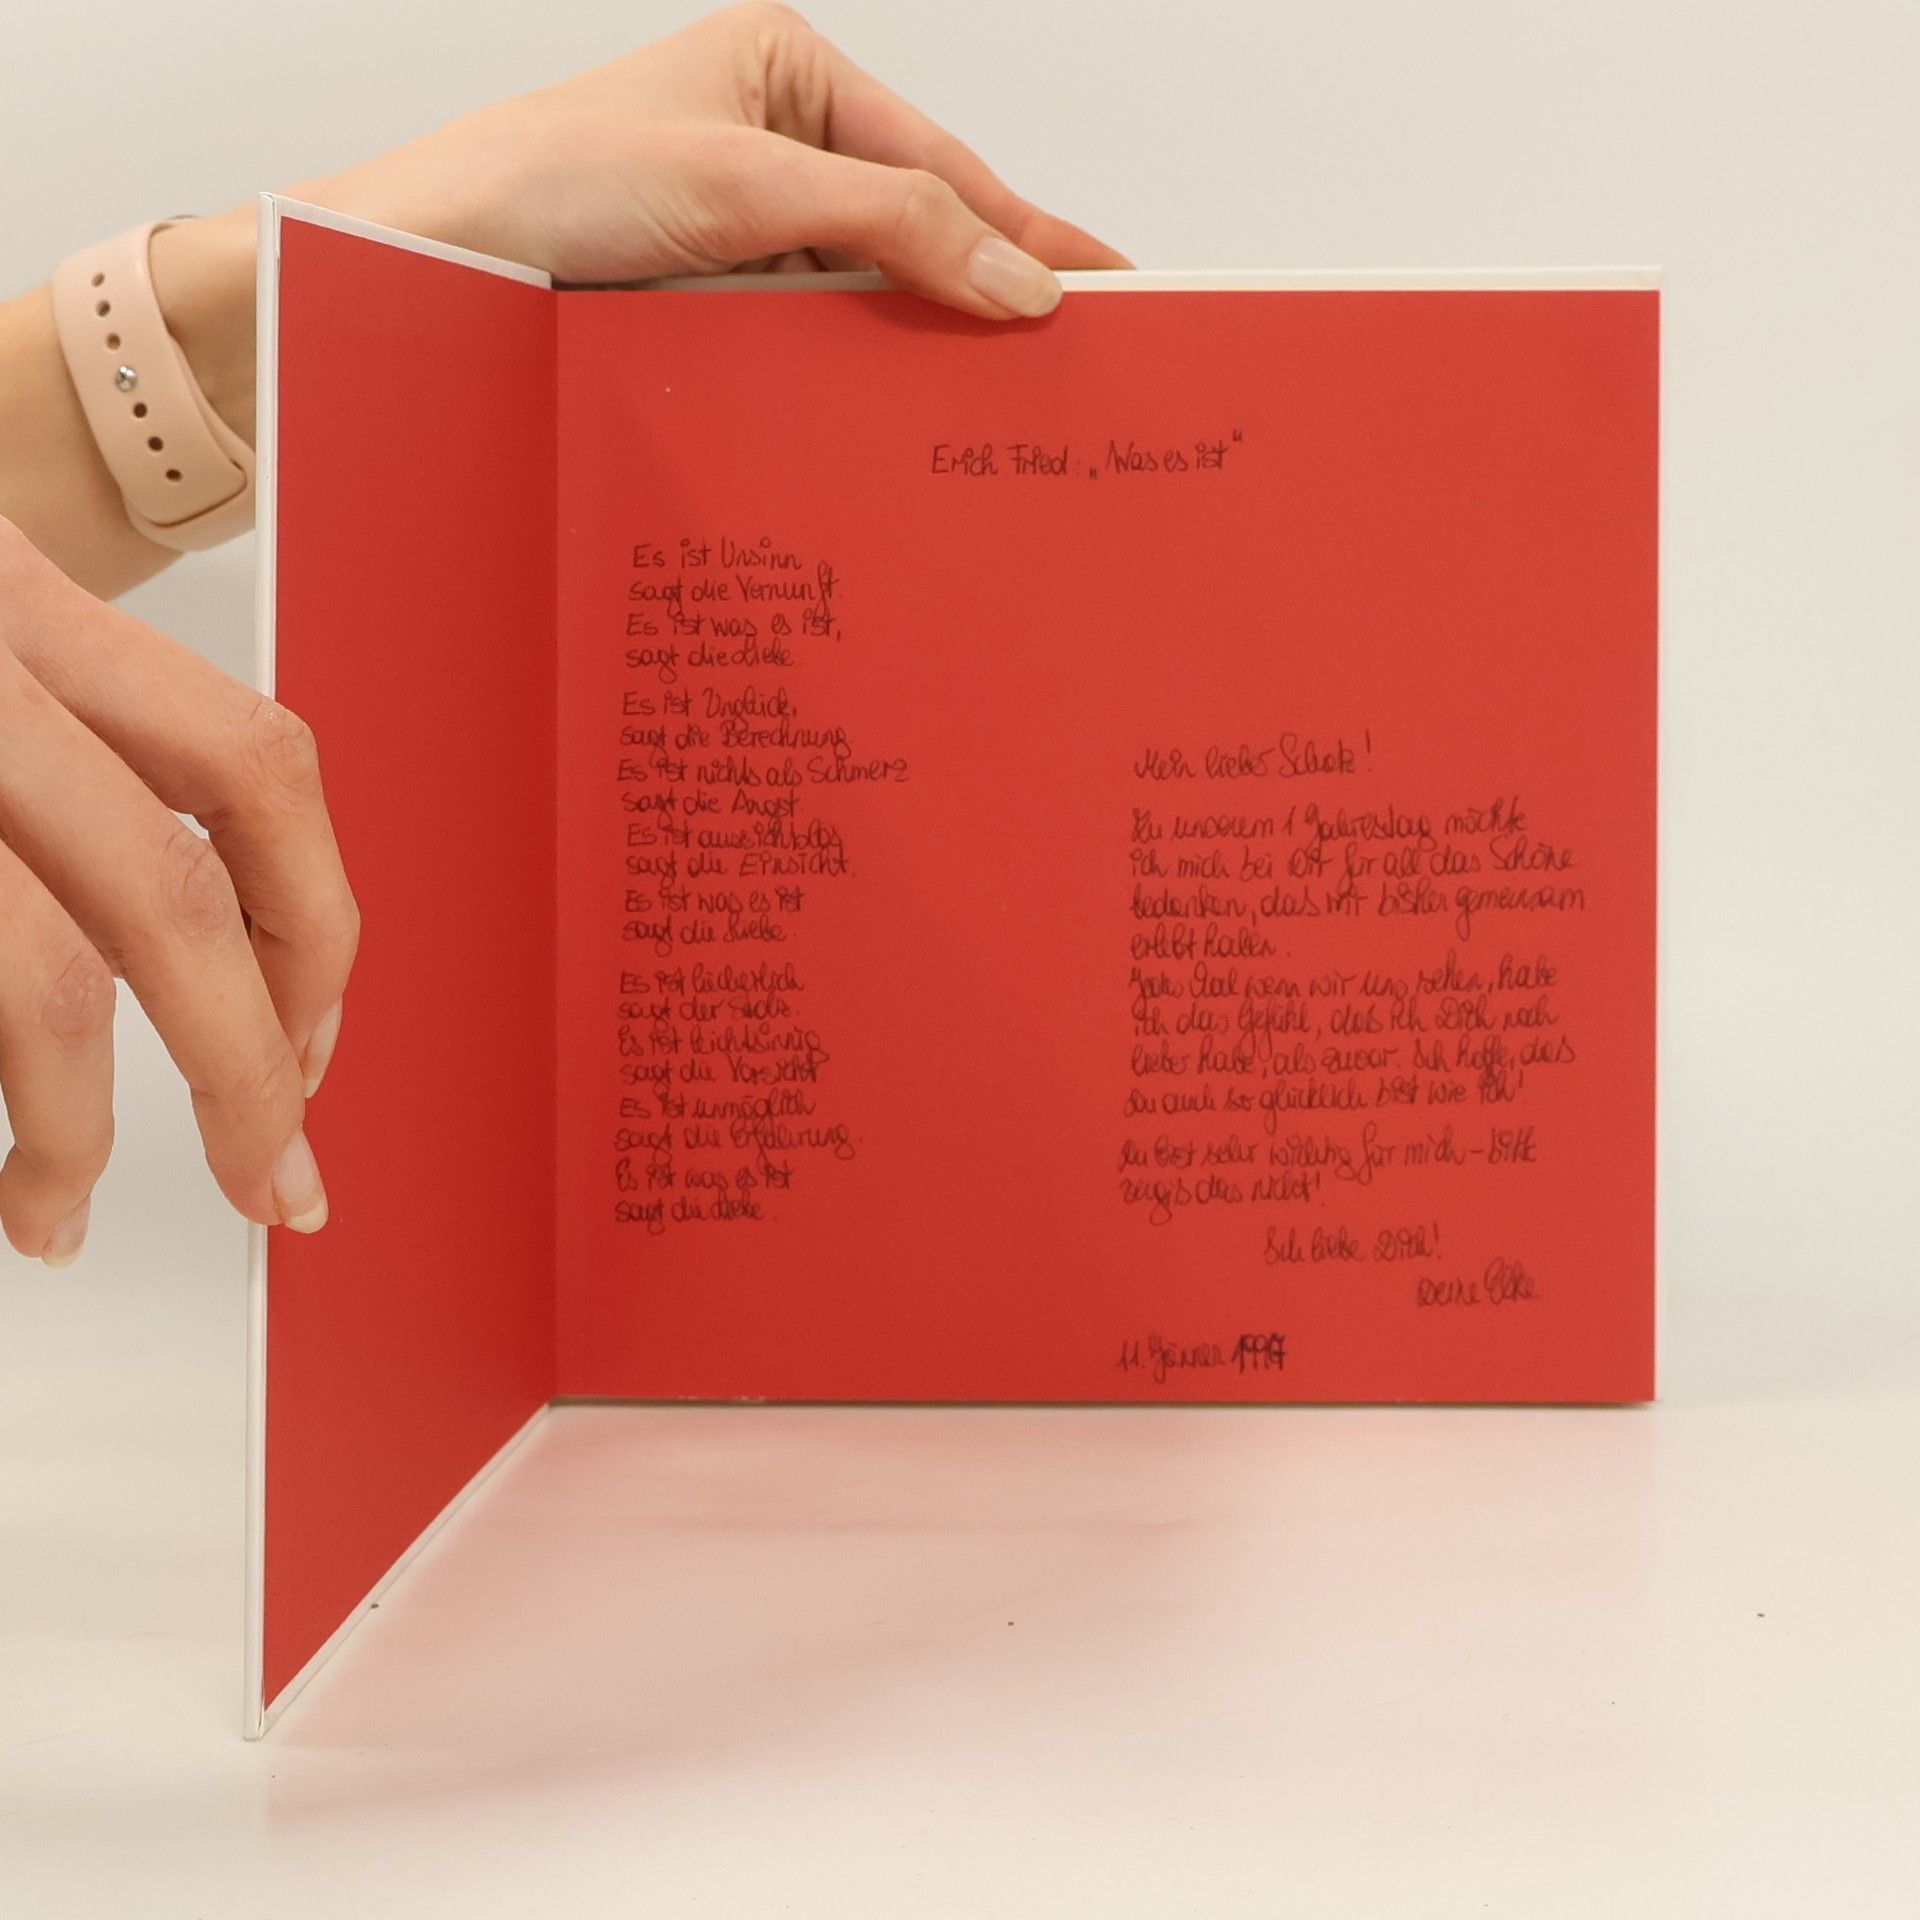 Erich Fried: „Was es ist"
Es ist Unsinn
sagt die Vernunft.
Es ist was es ist,
sagt die Liebe.
Es ist Unglück,
sagt die Berechnung.
Es ist nichts als Schmerz
sagt die Angst.
Es ist aussichtslos
sagt die Einsicht.
Es ist was es ist
sagt die Liebe.
Es ist lächerlich
sagt der Stolz.
Es ist leichtsinnig
sagt die Vorsicht
Es ist unmöglich
sagt die Erfahrung.
Es ist was es ist
sagt die Liebe.
Mein lieber Schatz!
Zu unserem 1 Jahrestag möchte
ich mich bei Dir für all das Schöne
bedanken, das wir bisher gemeinsam
erlebt haben.
Jedes Mal wenn wir uns sehen, habe
ich das Gefühl, das ich Dich noch
lieber habe, als zuvor. Ich hoffe, das
Du auch so glücklich bist wie ich!
Du bist sehr wichtig für mich - bitte
vergis das nicht!
Ich liebe Dich!
Deine Elke
11. Jänner 1997